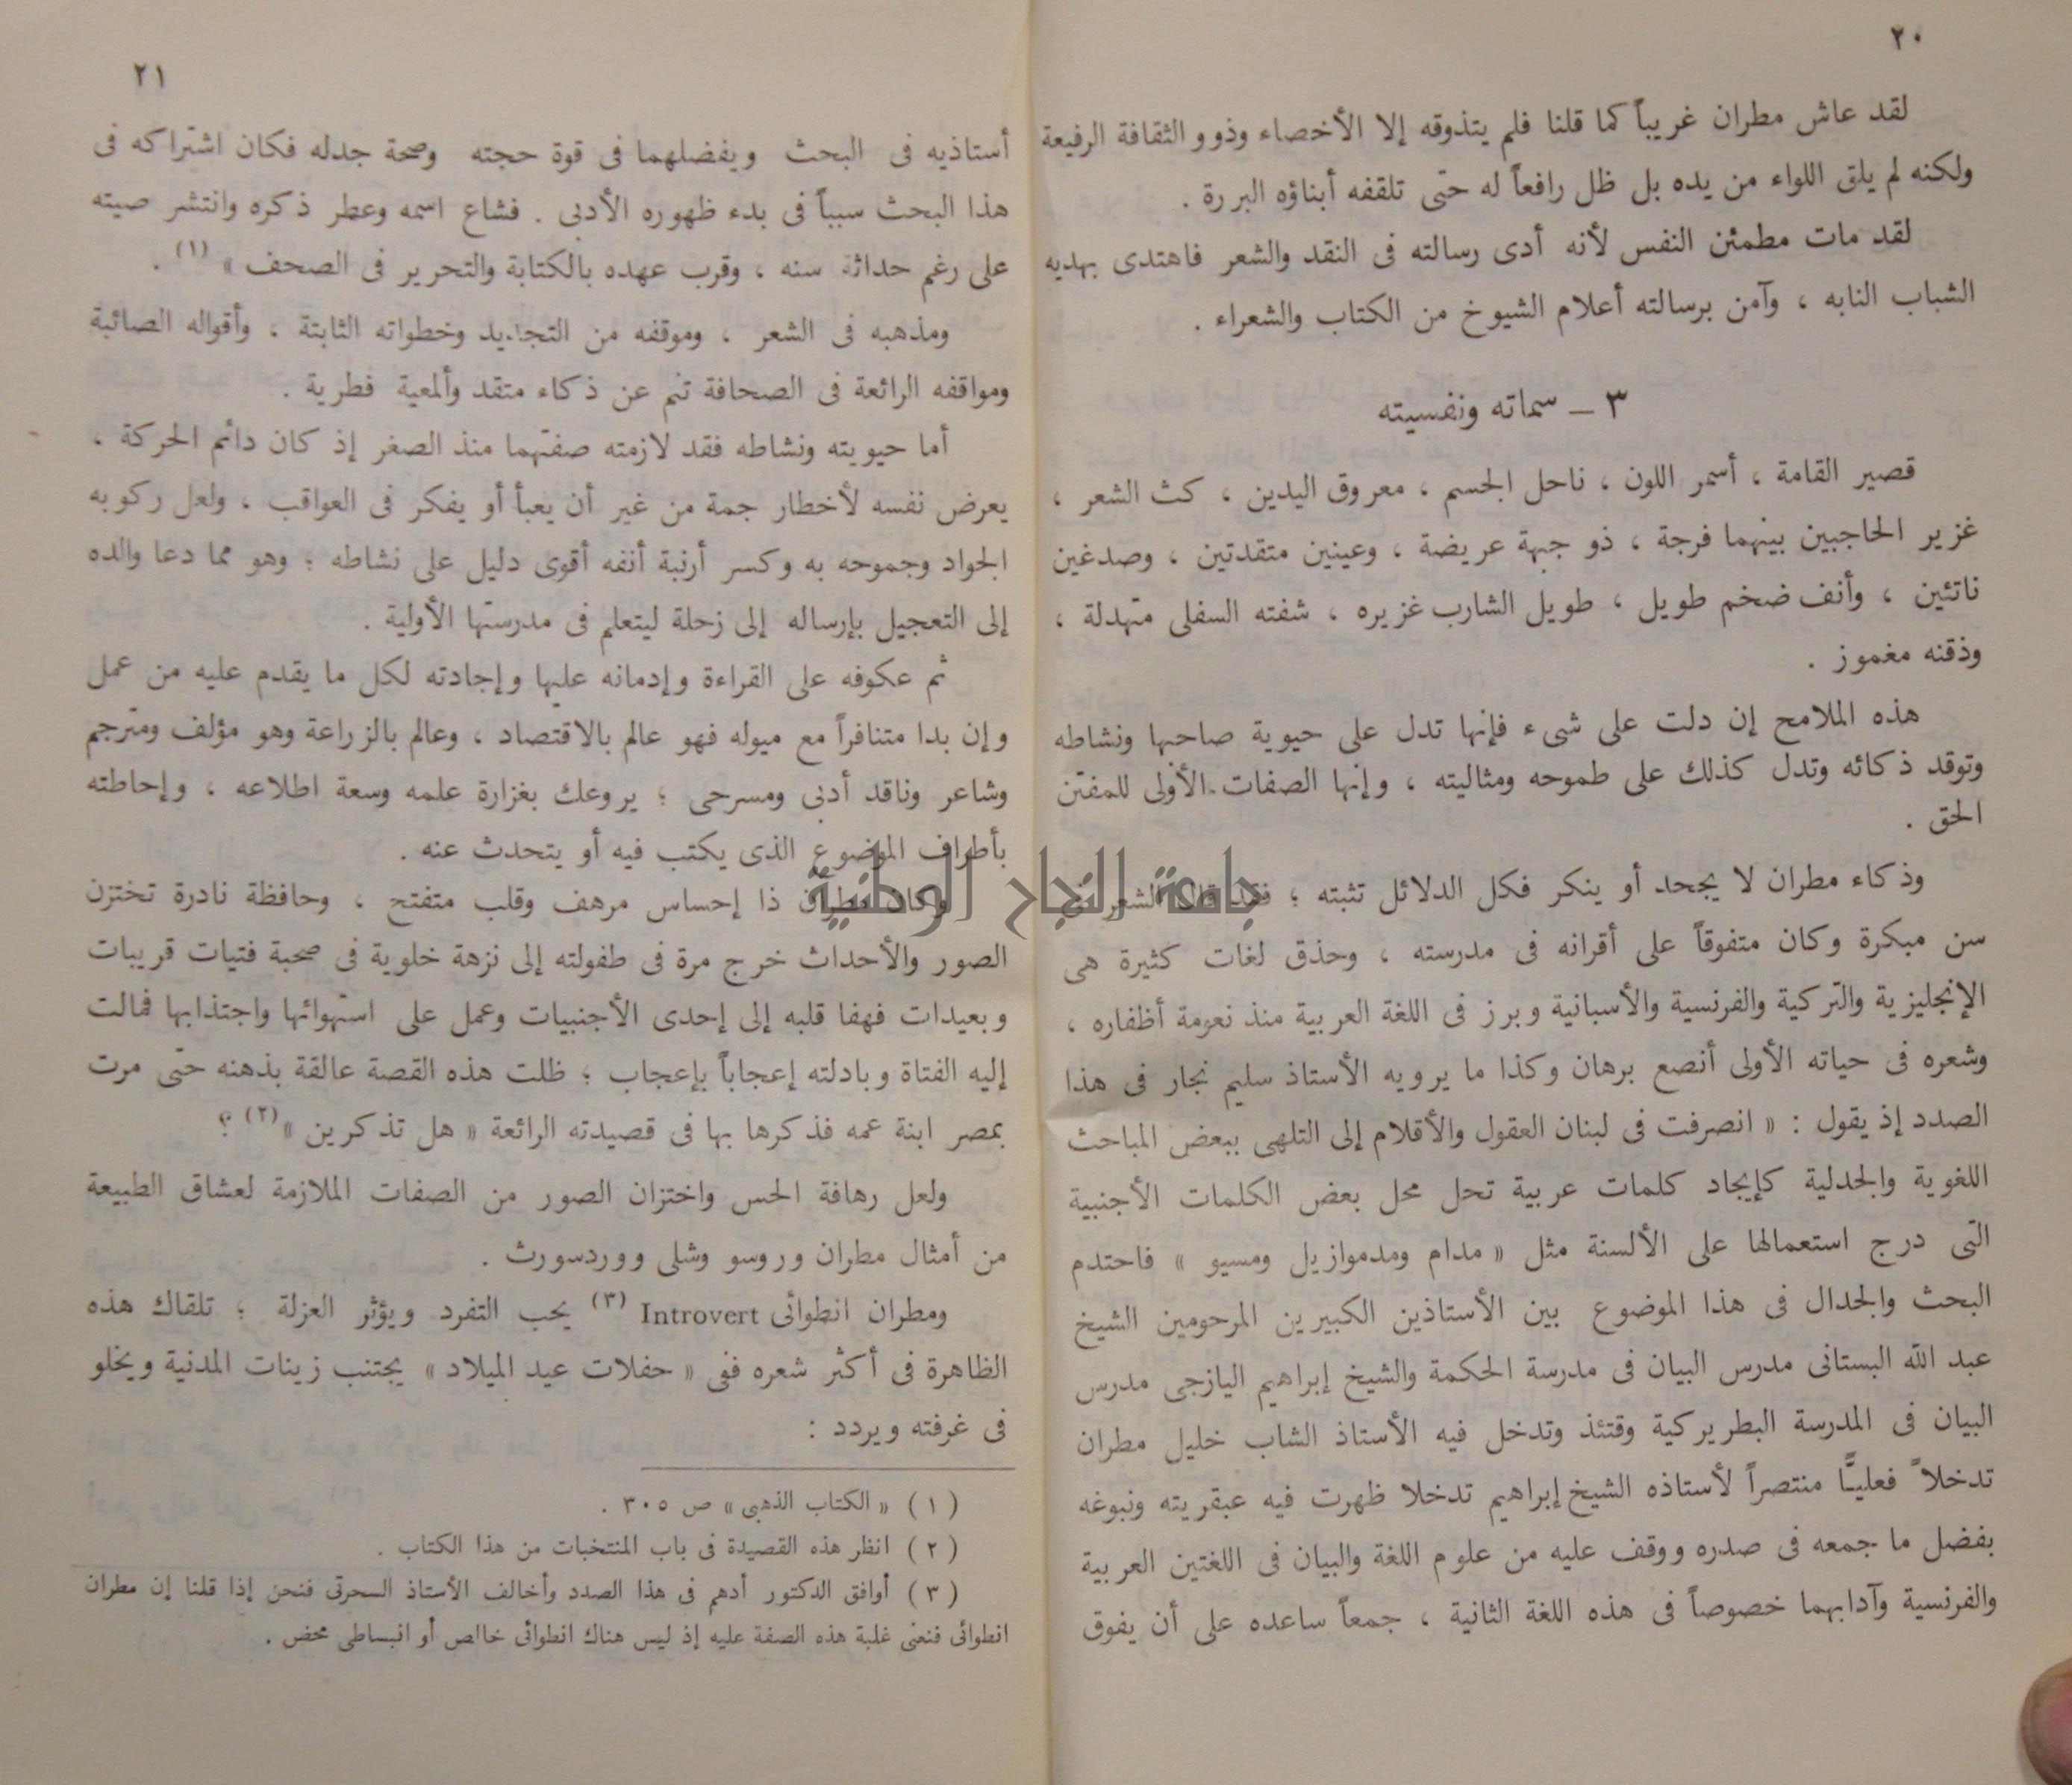 ٢٠
لقد عاش مطران غريباً كما قلنا فلم يتذوقه إلا الأخصاء وذوو الثقافة الرفيعة
ولكنه لم يلق اللواء من يده بل ظل رافعاً له حتى تلقفه أبناؤه البررة .
لقد مات مطمئن النفس لأنه أدى رسالته فى النقد والشعر فاهتدى بهديه
الشباب النابه ، وآمن برسالته أعلام الشيوخ من الكتاب والشعراء .
٣ – سماته ونفسيته
قصير القامة ، أسمر اللون ، ناحل الجسم ، معروق اليدين ، كث الشعر ،
غزير الحاجبين بينهما فرجة ، ذو جبهة عريضة ، وعينين متقدتين ، وصدغين
ناتئين ، وأنف ضخم طويل ، طويل الشارب غزيره ، شفته السفلى متهدلة ،
وذقنه مغموز .
هذه الملامح إن دلت على شىء فإنها تدل على حيوية صاحبها ونشاطه
وتوقد ذكائه وتدل كذلك على طموحه ومثاليته ، وإنها الصفات الأولى للمفتن
الحق .
وذكاء مطران لا يجحد أو ينكر فكل الدلائل تثبته ؛ فقد قال الشعر فى
سن مبكرة وكان متفوقاً على أقرانه فى مدرسته ، وحذق لغات كثيرة هى
الإنجليزية والتركية والفرنسية والأسبانية وبرز فى اللغة العربية منذ نعومة أظفاره ،
وشعره فى حياته الأولى أنصع برهان وكذا ما يرويه الأستاذ سليم نجار فى هذا
الصدد إذ يقول : « انصرفت فى لبنان العقول والأقلام إلى التلهى ببعض المباحث
اللغوية والجدلية كإيجاد كلمات عربية تحل محل بعض الكلمات الأجنبية
التى درج استعمالها على الألسنة مثل « مدام ومدموازيل ومسيو » فاحتدم
البحث والجدال فى هذا الموضوع بين الأستاذين الكبيرين المرحومين الشيخ
عبد الله البستانى مدرس البيان فى مدرسة الحكمة والشيخ إبراهيم اليازجى مدرس
البيان فى المدرسة البطريركية وقتئذ وتدخل فيه الأستاذ الشاب خليل مطران
تدخلاً فعليًّا منتصراً لأستاذه الشيخ إبراهيم تدخلا ظهرت فيه عبقريته ونبوغه
بفضل ما جمعه فى صدره ووقف عليه من علوم اللغة والبيان فى اللغتين العربية
والفرنسية وآدابهما خصوصاً فى هذه اللغة الثانية ، جمعاً ساعده على أن يفوق
٢١
أستاذيه فى البحث ويفضلهما فى قوة حجته وصحة جدله فكان اشتراكه فى
هذا البحث سبباً فى بدء ظهوره الأدبى . فشاع اسمه وعطر ذكره وانتشر صيته
على رغم حداثة سنه ، وقرب عهده بالكتابة والتحرير فى الصحف » (١) .
ومذهبه فى الشعر ، وموقفه من التجديد وخطواته الثابتة ، وأقواله الصائبة
ومواقفه الرائعة فى الصحافة تنم عن ذكاء متقد وألمعية فطرية .
أما حيويته ونشاطه فقد لازمته صفتهما منذ الصغر إذ كان دائم الحركة ،
يعرض نفسه لأخطار جمة من غير أن يعبأ أو يفكر فى العواقب ، ولعل ركوبه
الجواد وجموحه به وكسر أرنبة أنفه أقوى دليل على نشاطه ؛ وهو مما دعا والده
إلى التعجيل بإرساله إلى زحلة ليتعلم فى مدرستها الأولية .
ثم عكوفه على القراءة وإدمانه عليها وإجادته لكل ما يقدم عليه من عمل
وإن بدا متنافراً مع ميوله فهو عالم بالاقتصاد ، وعالم بالزراعة وهو مؤلف ومترجم
وشاعر وناقد أدبى ومسرحى ؛ يروعك بغزارة علمه وسعة اطلاعه ، وإحاطته
بأطراف الموضوع الذى يكتب فيه أو يتحدث عنه .
وكان مطران ذا إحساس مرهف وقلب متفتح ، وحافظة نادرة تختزن
الصور والأحداث خرج مرة فى طفولته إلى نزهة خلوية فى صحبة فتيات قريبات
وبعيدات فهفا قلبه إلى إحدى الأجنبيات وعمل على استهوائها واجتذابها فمالت
إليه الفتاة وبادلته إعجاباً بإعجاب ؛ ظلت هذه القصة عالقة بذهنه حتى مرت
بمصر ابنة عمه فذكرها بها فى قصيدته الرائعة « هل تذكرين » (٢) ؟
ولعل رهافة الحس واختزان الصور من الصفات الملازمة لعشاق الطبيعة
من أمثال مطران وروسو وشلى ووردسورث .
ومطران انطوائى Introvert (٣) يحب التفرد ويؤثر العزلة ؛ تلقاك هذه
الظاهرة فى أكثر شعره ففى « حفلات عيد الميلاد » يجتنب زينات المدنية ويخلو
فى غرفته ويردد :
( ١ ) « الكتاب الذهبى » ص ٣٠٥ .
( ٢ ) انظر هذه القصيدة فى باب المنتخبات من هذا الكتاب .
( ٣ ) أوافق الدكتور أدهم فى هذا الصدد وأخالف الأستاذ السحرتى فنحن إذا قلنا إن مطران
انطوائى فنعنى غلبة هذه الصفة عليه إذ ليس هناك انطوائى خالص أو انبساطى محض .
جامعة النجاح الوطنية